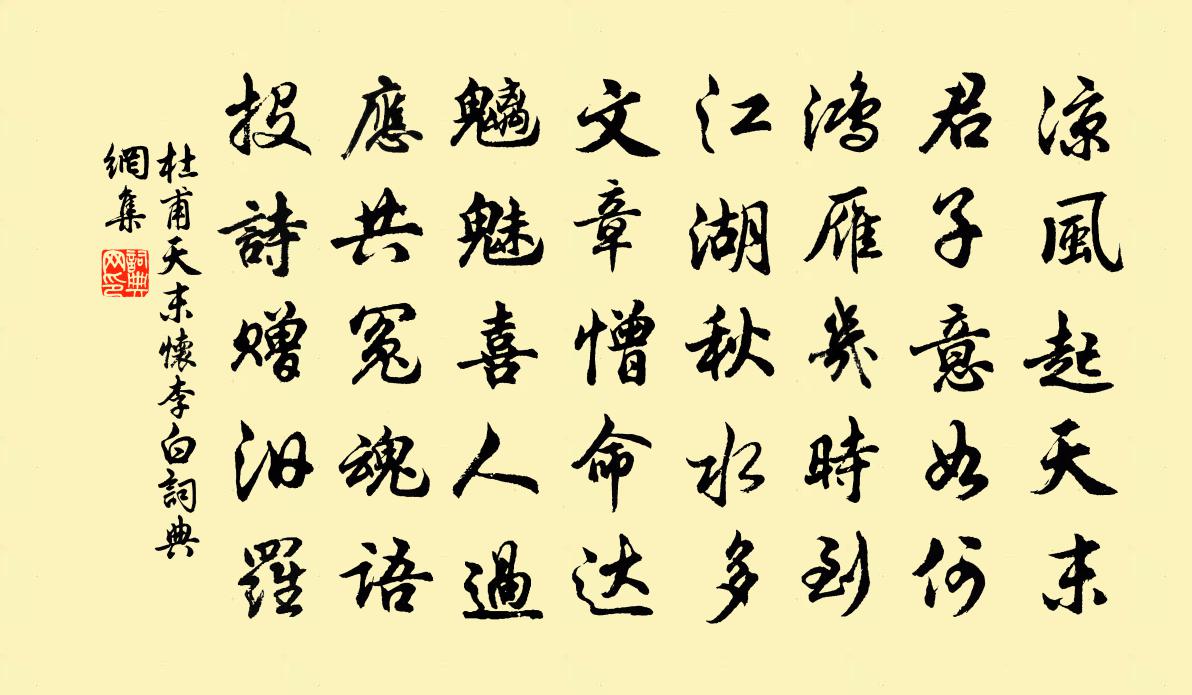 凉風起天末
君子意如何
鴻雁幾時到
江湖秋水多
文章憎命达
魑魅喜人過
應共冤魂語
投詩赠汨羅
杜甫天末懷李白詞典
網集
詞典
网印